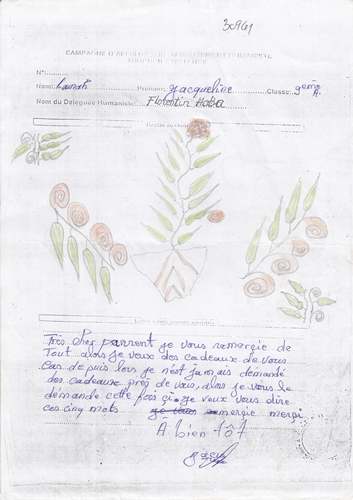 30941
CAMPAGNE D'APPUI DU MOUVEMENT HUMANISTE
N°:
Nom: Lamah Prénom: Jacqueline Classe: 9eme A.
Nom du Délégué Humaniste: Florentin Haba
Dessin
Très Cher parrent je vous remerçie de
Tout alors je veux des cadeaux de vous
Cas depuis lors je n'est jamais demandé
des cadeaux près de vous, alors je vous le
démande cette fois çi. je veux vous dire
ces cinq mots je vous remerçie merçi
A bien tôt